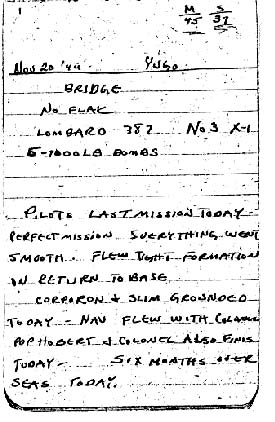 1
M S
45 37
Nov 20 '44. YUGO
BRIDGE
NO FLAK
LOMBARD 382 No 3 X-1
6-1000LB BOMBS
PILOTS LAST MISSION TODAY
PERFECT MISSION EVERYTHING WENT
SMOOTH. FLEW TIGHT FORMATION
ON RETURN TO BASE
CORPORON & SLIM GROUNDED
TODAY - NAV FLEW WITH COLONEL
POP HOBERT & COLONEL ALSO FINIS
TODAY - SIX MONTHS OVER
SEAS TODAY.